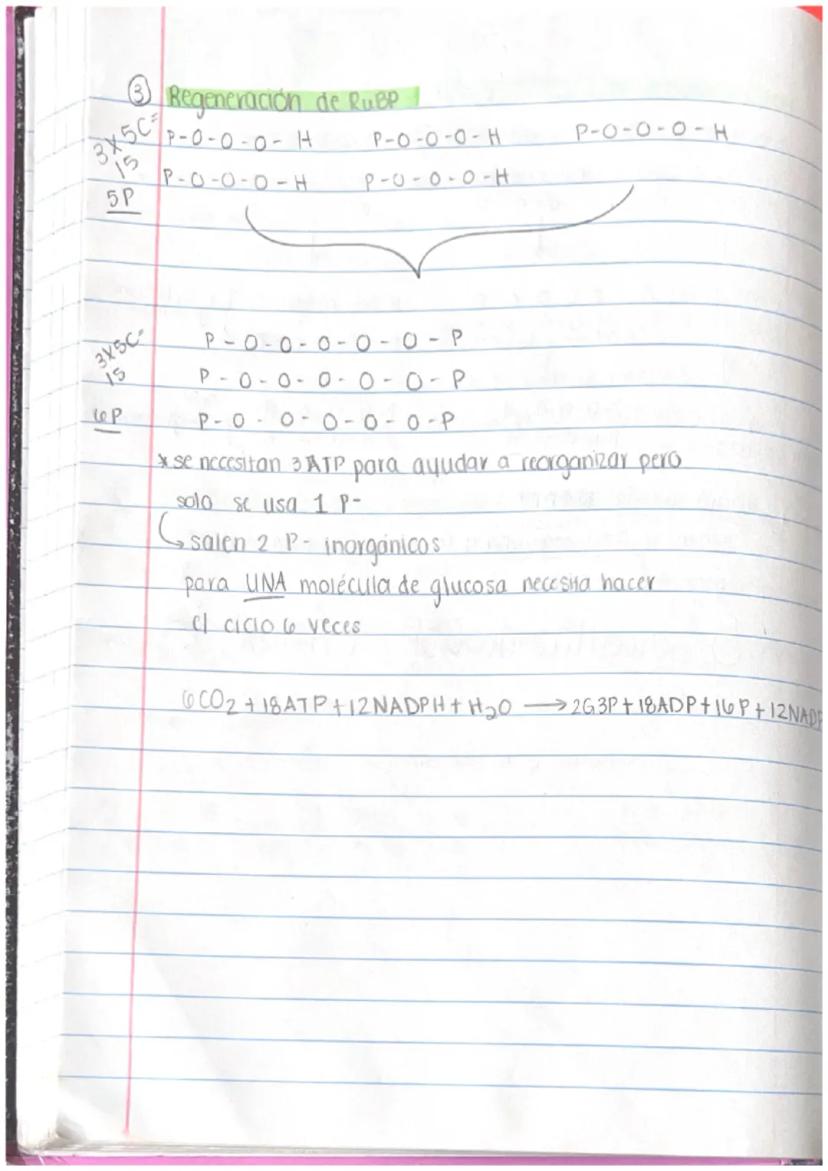 ③ Regeneración de RuBP
3X5C= P-O-O-O-H P-O-O-O-H P-O-O-O-H
15 P-O-O-O-H P-O-O-O-H
5P
3X5C= P-O-O-O-O-O-P
15 P-O-O-O-O-O-P
6P P-O-O-O-O-O-P
* se necesitan 3 ATP para ayudar a reorganizar pero
solo se usa 1 P-
↳ salen 2 P- inorgánicos
para UNA molécula de glucosa necesita hacer
el ciclo 6 veces
6CO2 + 18ATP + 12NADPH + H2O → 2G3P + 18ADP + 16P + 12NADP